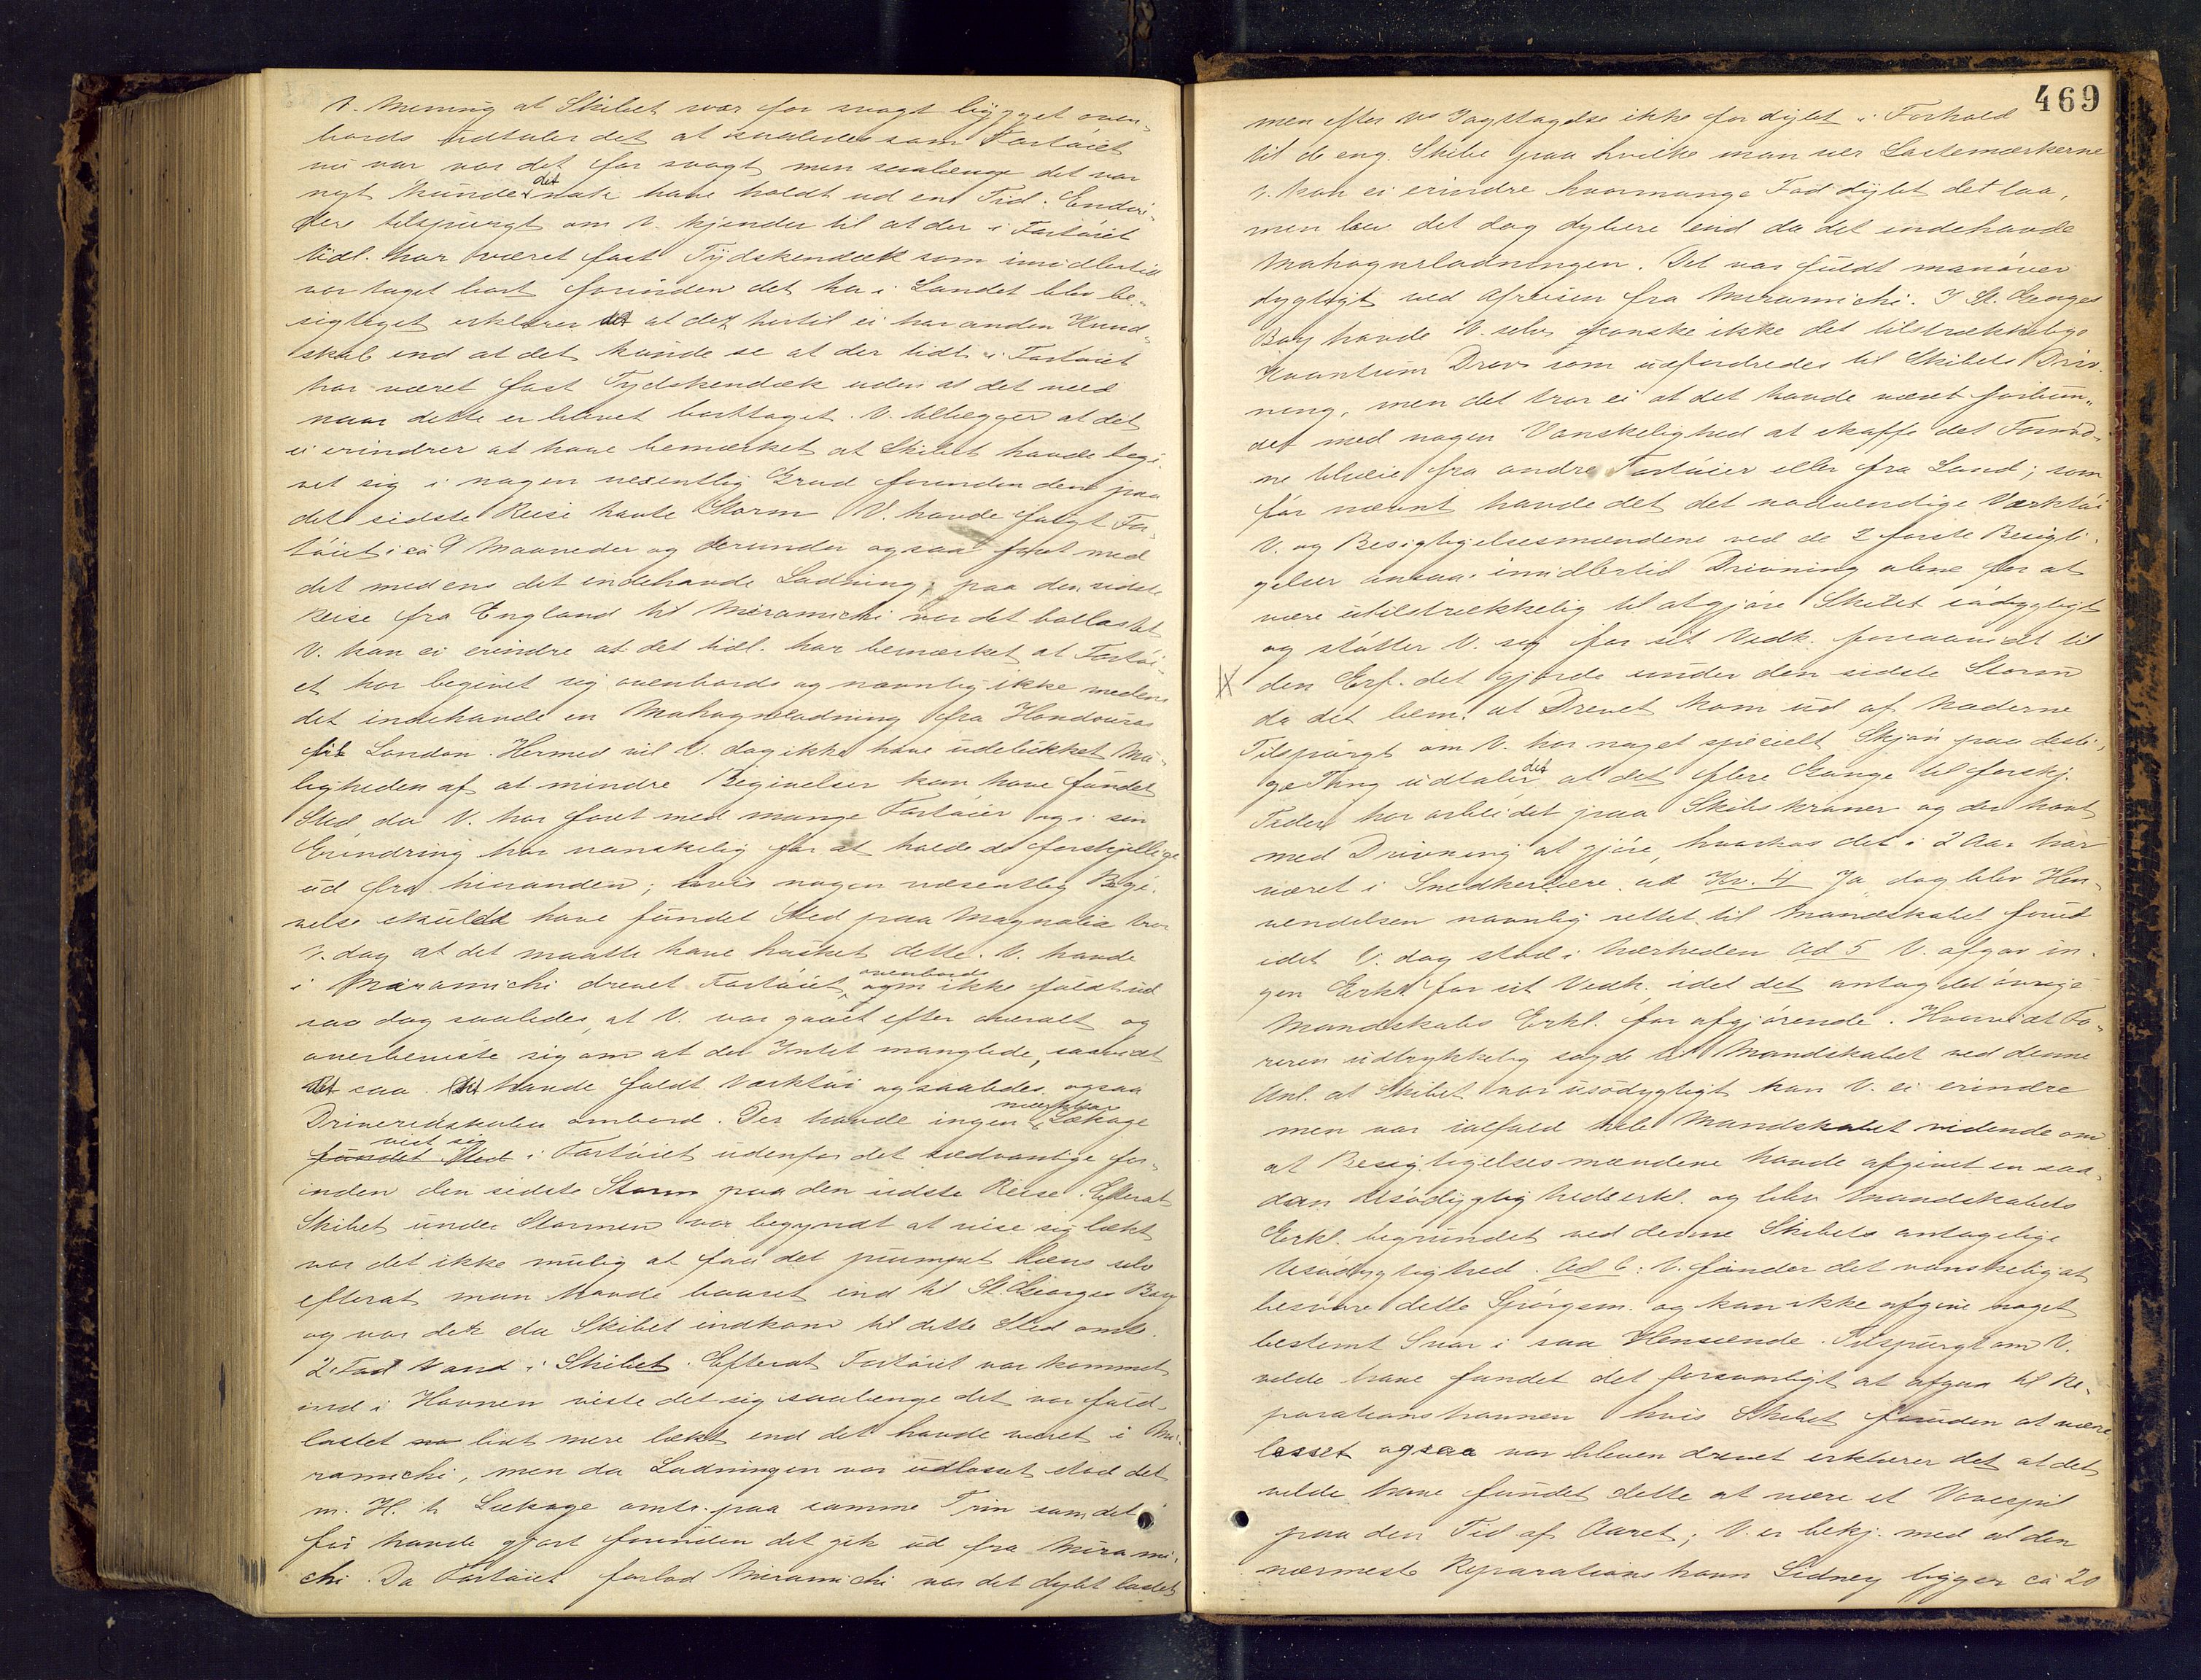 V. Mening at Skibet var for svagt bygget oven-
bords udtaler det at saaledes som Fartøiet
nu var var det for svagt men saalænge det var
nyt kunde det nok have holdt ud en Tid. Endvi-
dere tilspurgt om V. kjender til at der i Fartøiet
tidl. har været fast Tydskendæk som imidlertid
var taget bort forinden det her i Landet blev be-
sigtiget erklærer at det hertil ei har anden Kund-
skab end at det kunde se at der tidl. i Fartøiet
har været fast Tydskendæk uden at det veed
naar dette er blevet borttaget. V. tillægger at det
ei erindrer at have bemærket at Skibet havde begi-
vet sig i nogen væsentlig Grad forinden den paa
det sidste Reise havte Storm. V. havde fulgt Far-
tøiet i ca 9 Maaneder og derunder ogsaa faret med
det medens det indehavde Ladning; paa den sidste
Reise fra England til Miramichi var det ballastet
V. kan ei erindre at det tidl. har bemærket at Fartøi-
et har begivet sig ovenbords og navnlig ikke medens
det indehavde en Mahognyladning fra Hondouras
til London. Hermed vil V. dog ikke have udelukket Mu-
ligheden af at mindre Begivelser kan have fundet
Sted, da V. har faret med mange Fartøier og i sin
Erindring har vanskelig for at holde de forskjellige
ud fra hinanden; hvis nogen væsentlig Begi-
velse skulde have fundet Sted paa Magnolia tror
V. dog at det maatte have husket dette. V. havde
i Miramichi drevet Fartøiet ovenbords om ikke fuldt ud
saa dog saaledes, at V. var gaaet efter overalt og
overbeviste sig om at der Intet manglede, saavidt
det saa. Det havde fuldt Værktøi og saaledes ogsaa
Driveredskaber ombord. Der havde ingen mærkbar Lækage
vist sig i Fartøiet udenfor det sædvanlige for-
inden den sidste Storm paa den sidste Reise. Efterat
Skibet under Stormen var begyndt at vise sig lækt
var det ikke mulig at faa det pumpet læns selv
efterat man havde baaret ind til St. Georges Bay
og var der da Skibet indkom til dette Sted omtr.
2 Fod Vand i Skibet. Efterat Fartøiet var kommet
ind i Havnen viste det sig saalænge det var fuld-
lastet lidt mere lækt end det havde været i Mi-
ramichi, men da Ladningen var udlosset stod det
m. H. t. Lækage omtr. paa samme Trin som det
før havde gjort forinden det gik ud fra Mirami-
chi. Da Fartøiet forlod Miramichi var det dybt lastet
469
men efter Vs Iagttagelse ikke for dybt i Forhold
til de eng. Skibe paa hvilke man ser Lastemærkerne
V. kan ei erindre hvormange Fod dybt det laa,
men laa det dog dybere end da det indehavde
Mahognyladningen. Det var fuldt manøver
dygtigt ved Afreisen fra Miramichi. I St. Georges
Bay havde V. selv ganske ikke det tilstrækkelige
Kvantum Drev som udfordredes til Skibets Driv-
ning, men det tror ei at det havde været forbun-
det med nogen Vanskelighed at skaffe det Fornød-
ne tilveie fra andre Fartøier eller fra Land; som
før nævnt havde det det nødvendige Værktøi
V. og Besigtigelsesmændene ved de 2 første Besigti-
gelser ansaa imidlertid Drivning alene for at
være utilstrækkelig til at gjøre Skibet sødygtigt
og støtter V. sig for sit Vedk. forsaavidt til
den Erf. det gjorde under den sidste Storm
da det bem. at Drevet kom ud af Naderne
Tilspurgt om V. har noget specielt Skjøn paa desli-
ge Ting udtaler det at det flere Gange til forskj.
Tider har arbeidet paa Skibskraner og der havt
med Drivning at gjøre, hvorhos det i 2 Aar har
været i Snedkerlære. ad Kv. 4 Ja dog blev Hen-
vendelsen navnlig rettet til Mandskabet forud
idet V. dog stod i Nærheden ad 5 V. afgav in-
gen Erkl. for sit Vedk. idet det antog det øvrige
Mandskabs Erkl. for afgjørende. Hvorvidt Fø-
reren udtrykkelig sagde til Mandskabet ved denne
Anl. at Skibet var usødygtigt kan V. ei erindre
men var ialfald hele Mandskabet vidende om
at Besigtigelsesmændene havde afgivet en saa-
dan Usødygtighedserkl. og blev Mandskabets
Erkl. begrundet ved denne Skibets antagelige
Usødygtighed. Ad 6: V. finder det vanskelig at
besvare dette Spørgsm. og kan ikke afgive noget
bestemt Svar i saa Henseende. Tilspurgt om V.
vilde have fundet det forsvarligt at afgaa til Re-
parationshavnen hvis Skibet foruden at være
losset ogsaa var bleven drevet erklærer det at det
vilde have fundet dette at være et Vovespil
paa den Tid af Aaret; V. er bekj. med at den
nærmeste Reparationshavn Sidney ligger ca 20